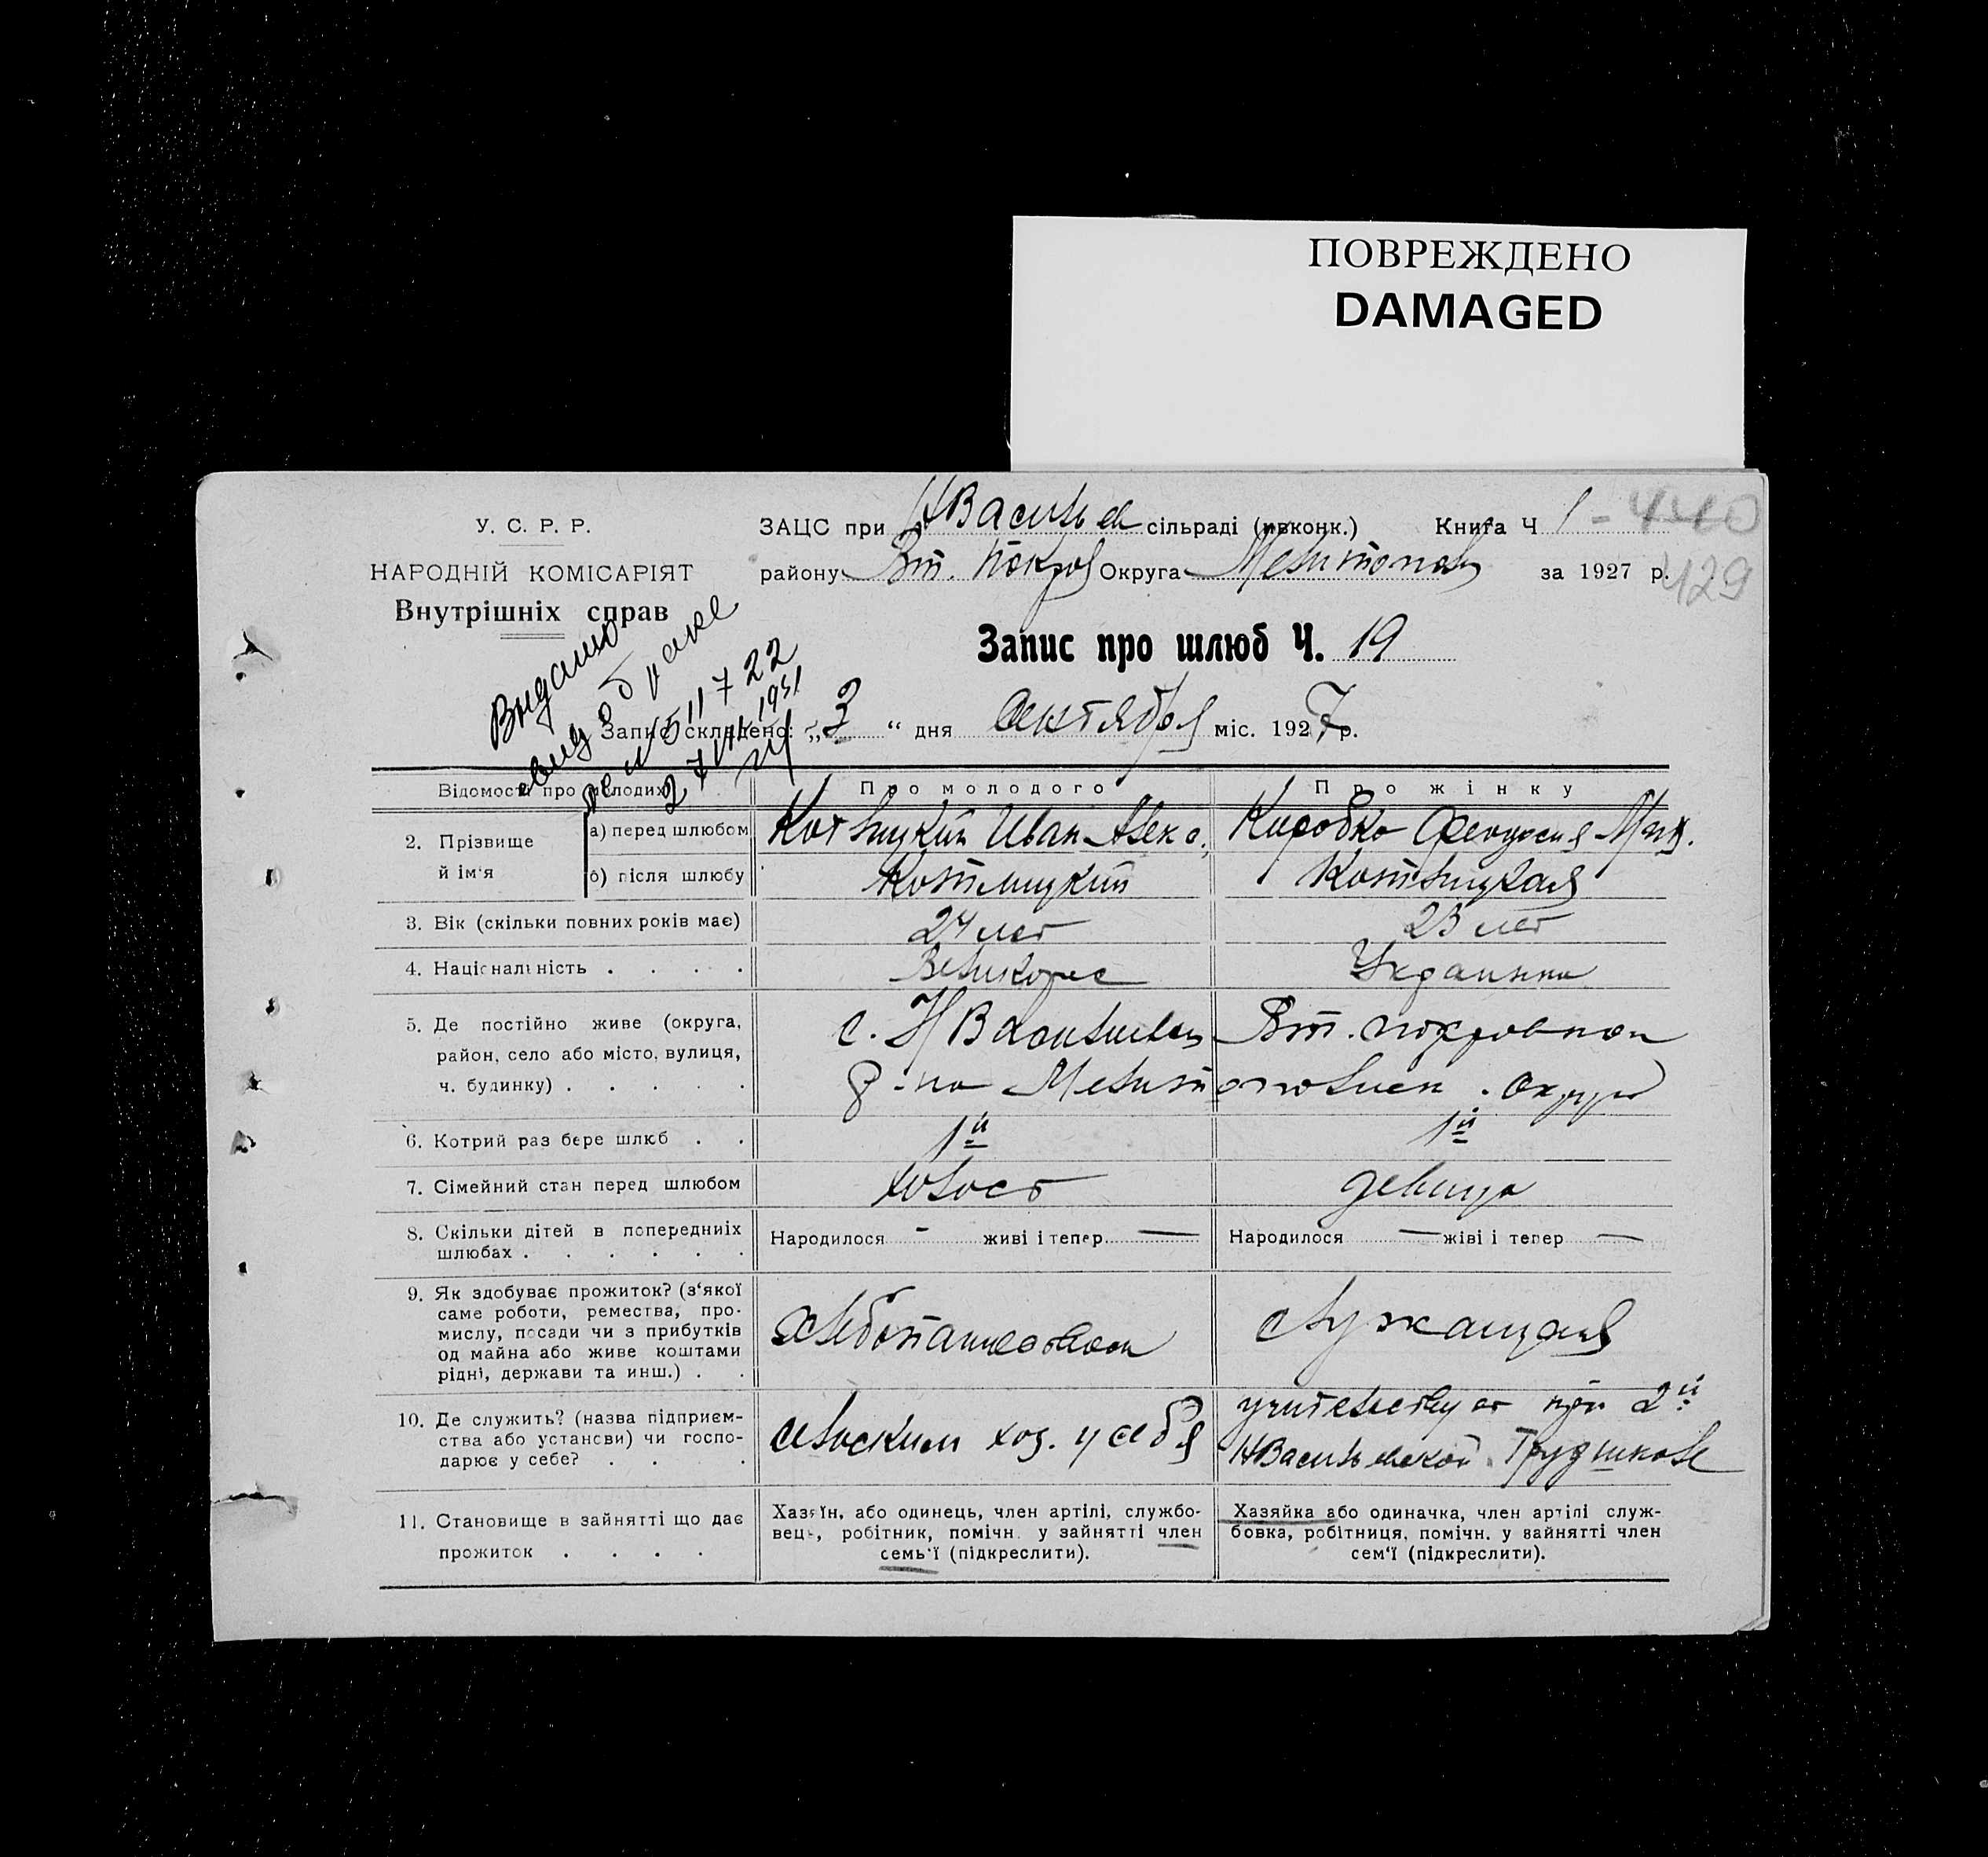 ПОВРЕЖДЕНО
DAMAGED
У. С. Р. Р.
НАРОДНІЙ КОМІСАРІЯТ
Внутрішніх справ
ЗАЦС при НВасильев сільраді (ивконк.) Книга Ч 1 - 440
району Вт. Покров Округа Мелитопол за 1927 р. 429
Запис про шлюб Ч. 19
Выдано
о браке
511722
1951
Запис складено: „3“ дня сентября міс. 1927 р.
Відомості про молодих Про молодого Про жінку
2. Прізвище й ім'я
а) перед шлюбом Котлицкий Иван Алекс. Коробко Феодосия Мих.
б) після шлюбу Котлицкий Котлицкая
3. Вік (скільки повних років має) 24 лет 23 лет
4. Національність . . . . Великорус Украинка
5. Де постійно живе (округа,
район, село або місто, вулиця,
ч. будинку) . . . . .
с. НВасильевка Вт. покровского
р-на Мелитопольск. округа
6. Котрий раз бере шлюб . . 1й 1й
7. Сімейний стан перед шлюбом холост девица
8. Скільки дітей в попередниіх
шлюбах . . . . . .
Народилося - живі і тепер — Народилося — жіві і тепер —
9. Як здобуває прожиток? (з'якої
саме роботи, ремества, про-
мислу, посади чи з прибутків
од майна або живе коштами
рідні, держави та инш.) . .
хлебопашеством служащая
10. Де служить? (назва підприєм-
ства або установи) чи госпо-
дарює у себе? . . . .
сельским хоз. у себя
учительствует при 2й
НВасильевской Трудшколе
11. Становище в зайнятті що дає
прожиток . . . .
Хазяїн, або одинець, член артілі, службо-
вець, робітник, помічн. у зайнятті член
семь'ї (підкреслити).
Хазяйка або одиначка, член артілі служ-
бовка, робітниця, помічн. у вайнятті член
сем'ї (підкреслити).